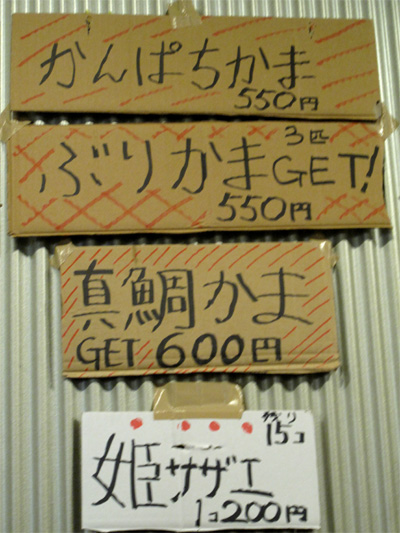 かんぱちかま
550円
3匹
ぶりかまGET!
550円
真鯛かま
GET 600円
残り
15コ
姫サザエ
1コ200円